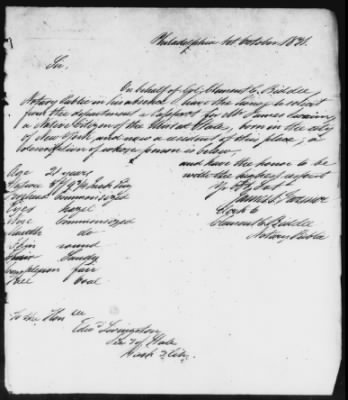 Philadelphia 1st October 1831.
Sir,
On behalf of Col. Clement C. Biddle,
Notary Public in his absence I have the honor to solicit
from the department a Passport for Mr James
a Native Citizen of the United State, born in the city
of New York and now a resident of this place; a
description of whose person is below,
and have the honor to be
with the highest respect
Yr Ob St
James
Clerk to
Clement C. Biddle
Notary Public
Age 21 years
Stature 5 ft 9 3/4 Inch Eng
Forehead Commonsized
Eyes hazel
Nose Commonsized
Mouth do
Chin round
Hair Sandy
Complexion fair
Face oval
To the Honble
Edwd Livingston
Sec of State
Wash City